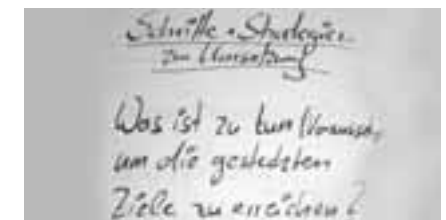 Schritte + Strategien
zur Umsetzung
Was ist zu tun
um die gesteckten
Ziele zu erreichen?